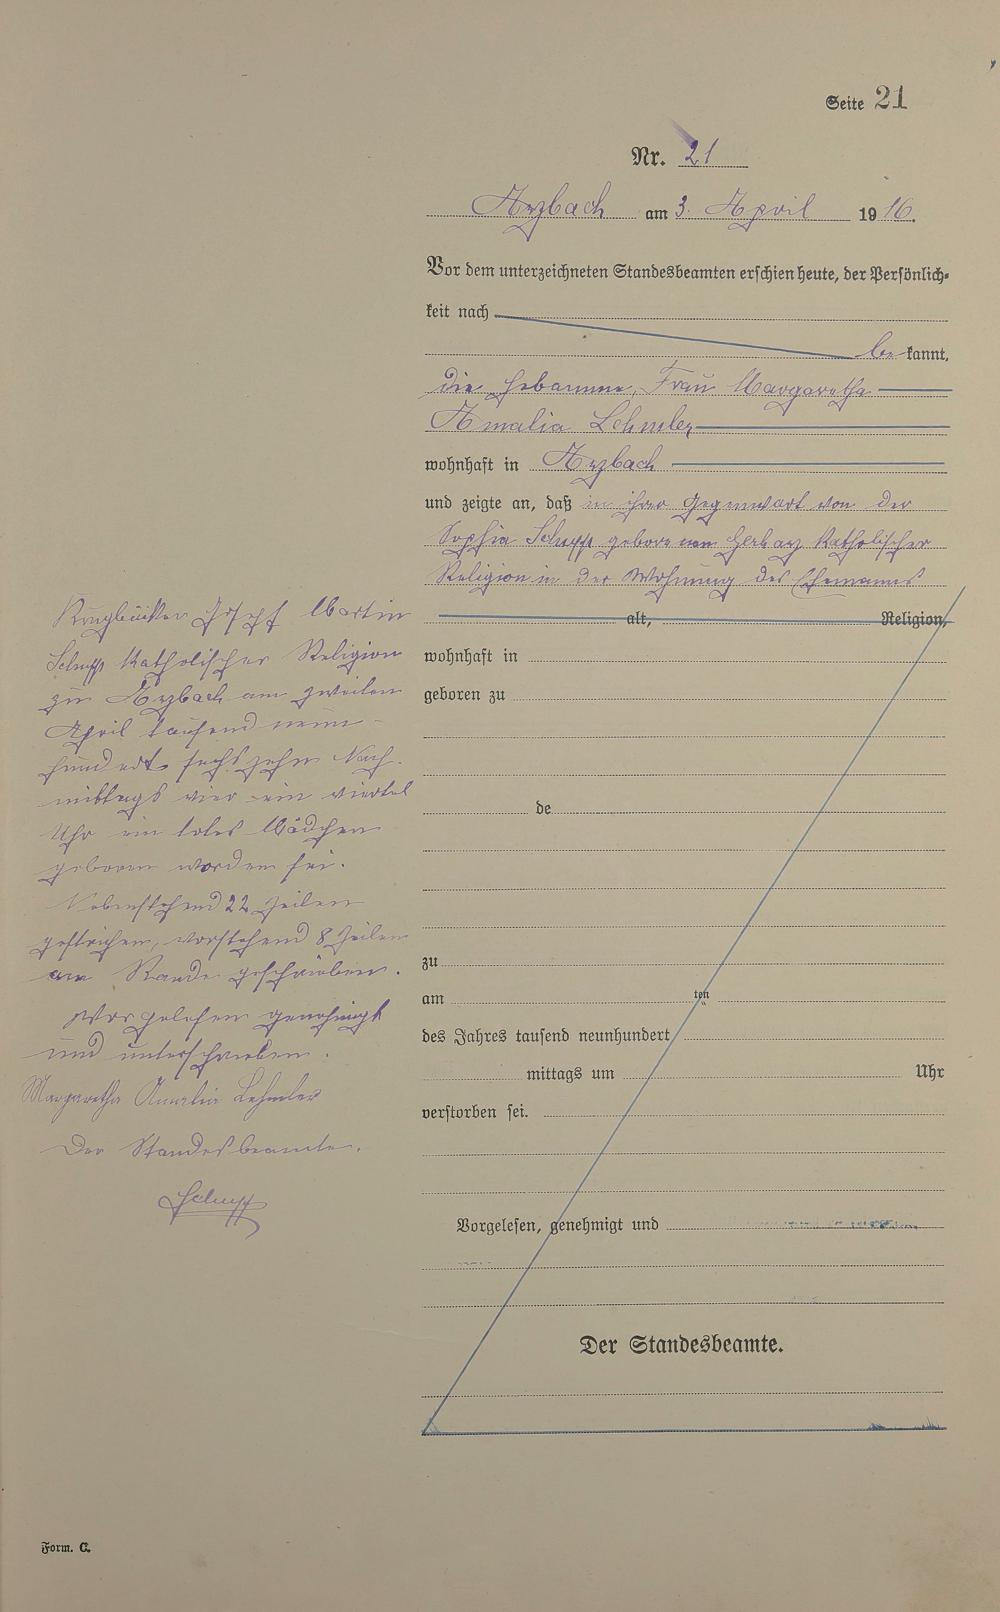 Seite 21
Nr. 21
Arzbach am 3. April 1916.
Vor dem unterzeichneten Standesbeamten erschien heute, der Persönlich-
keit nach
be kannt,
die Hebamme, Frau Margaretha
Amalia Lehmler
wohnhaft in Arzbach
und zeigte an, daß in ihrer Gegenwart von der
Sophia Schupp geborenen Herbarz Katholischer
Religion in der Wohnung des Ehemannes
alt, Religion,
wohnhaft in
geboren zu
de
zu
am ten
des Jahres tausend neunhundert
mittags um Uhr
verstorben sei.
Vorgelesen, genehmigt und
Der Standesbeamte.
Krugbäcker Josef Martin
Schupp Katholischer Religion
zu Arzbach am zweiten
April tausend neun-
hundert sechszehn Nach-
mittags vier ein viertel
Uhr ein totes Mädchen
geboren worden sei.
Nebenstehend 22 Zeilen
gestrichen, vorstehend 8 Zeilen
am Rande geschrieben.
Vorgelesen genehmigt
und unterschrieben.
Margaretha Amalia Lehmler
Der Standesbeamte.
Schupp
Form. C.